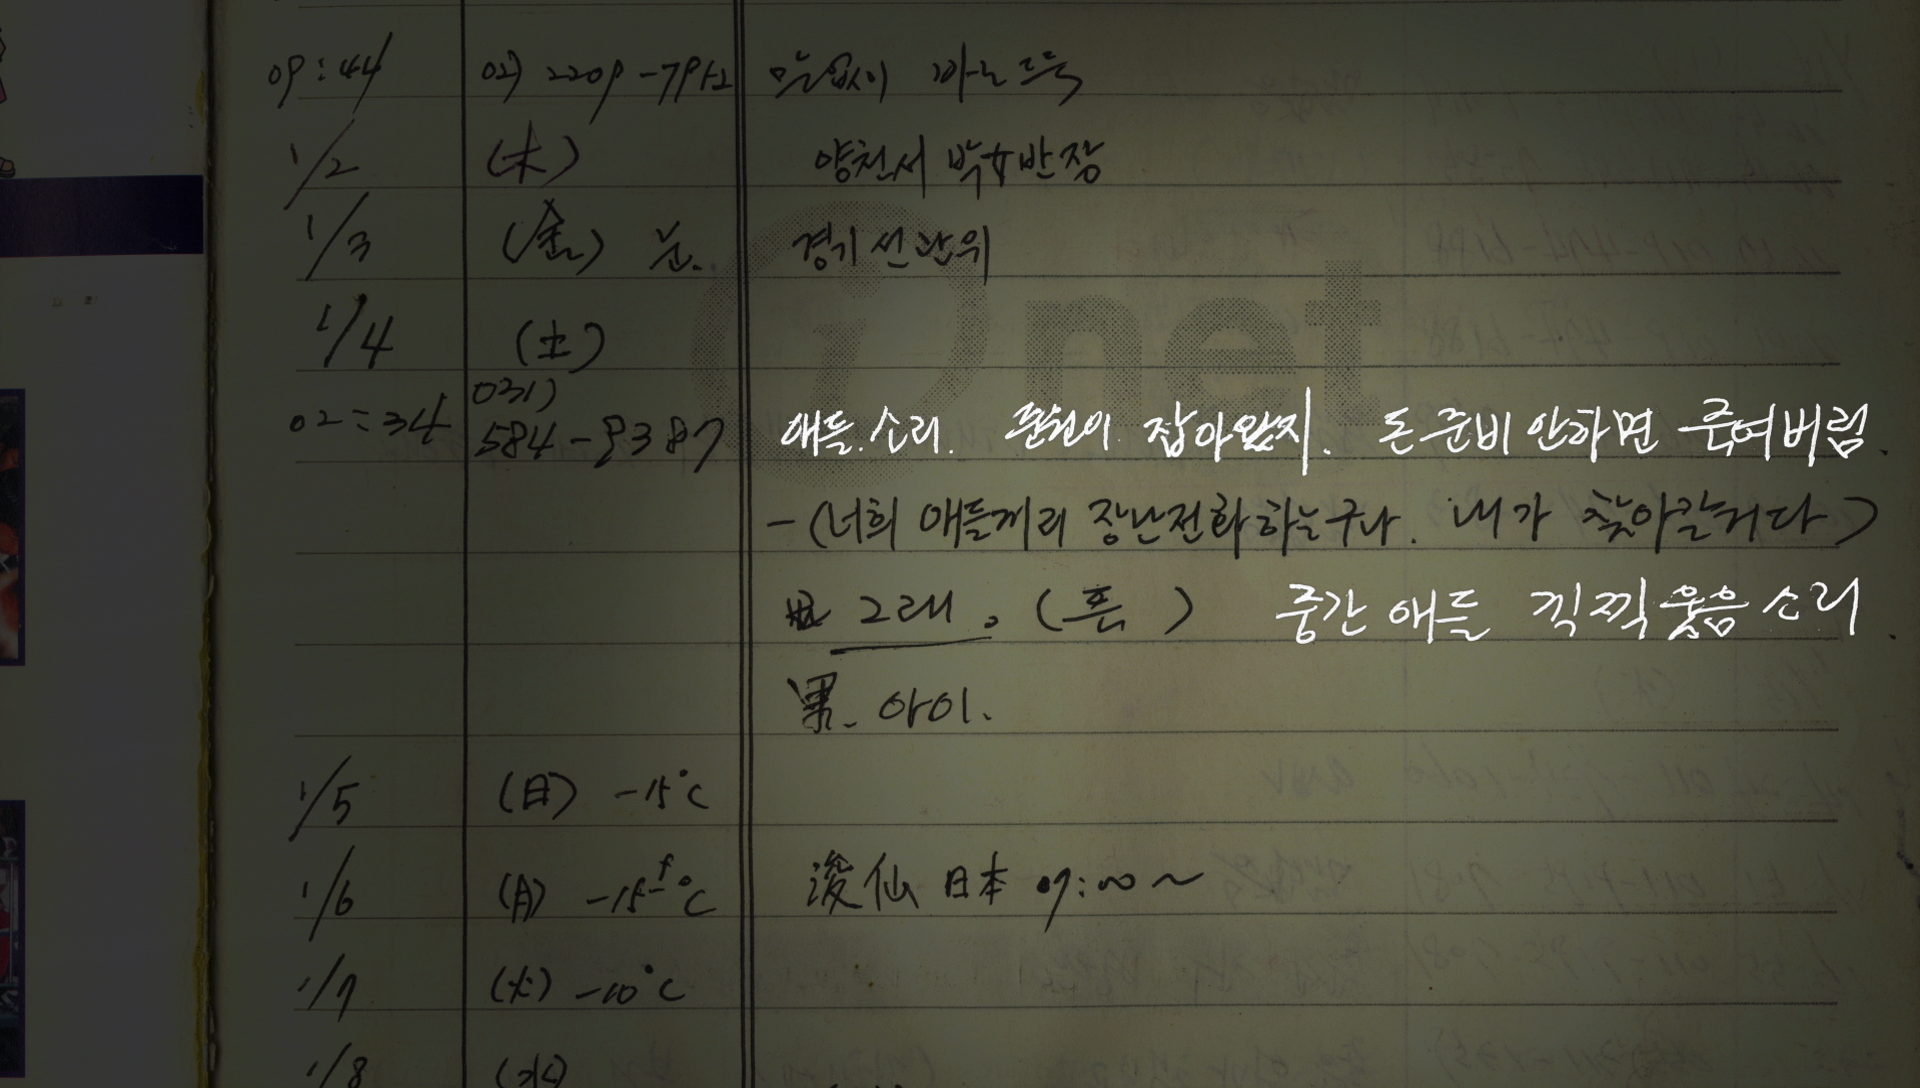 09:44 02) 2209-7912 말없이
1/2 (木) 양천서 박女반장
1/3 (金) 눈. 경기선관위
1/4 (土)
i net
02:34 031) 584-8387 애들.소리. 준원이 잡아왔지. 돈준비 안하면 죽여버림.
-(너희 애들끼리 장난전화하는구나. 내가 찾아갈거다)
그래. (픈 ) 중간 애들 킥찍웃음소리
아이.
1/5 (日) -15°C
1/6 (月) -15°C 浚仙 日本 09:00~
1/7 (火) -10°C
1/8 (水)